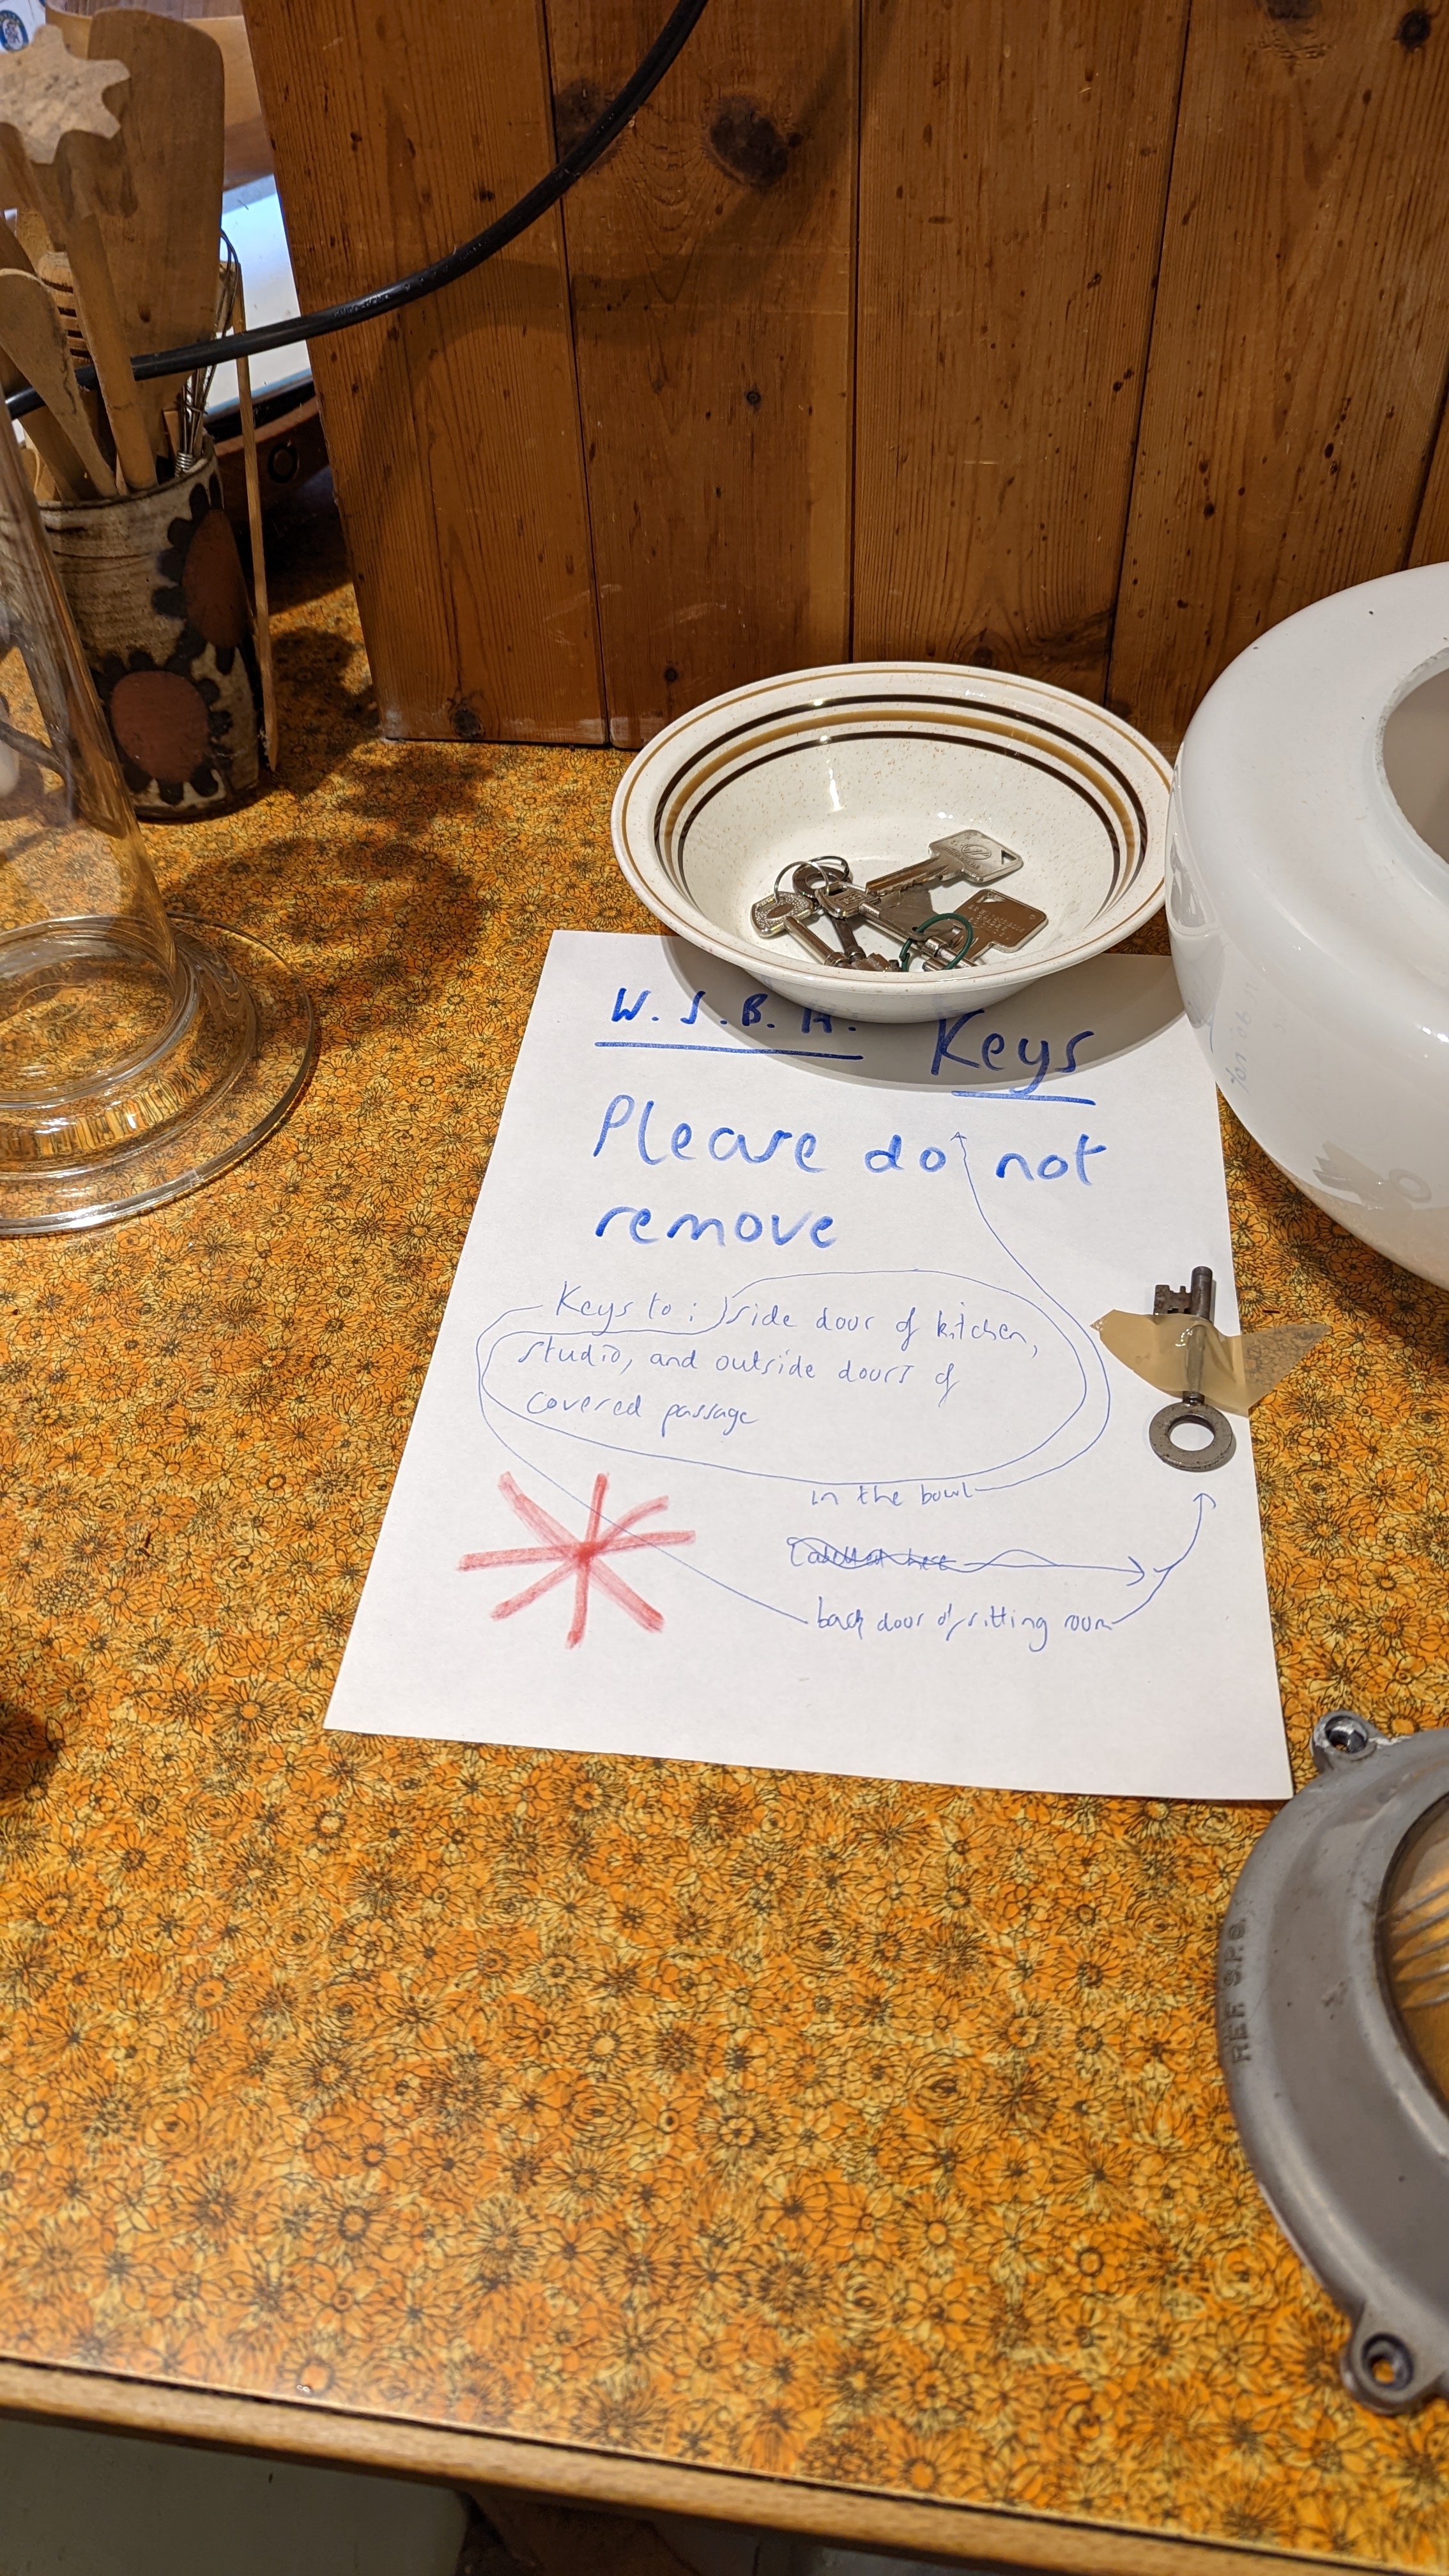 W. S. B. H. Keys
Please do not
remove
Keys to: side door of kitchen,
studio, and outside doors of
covered passage
in the bowl
back door of sitting room
REF. S.P.9.